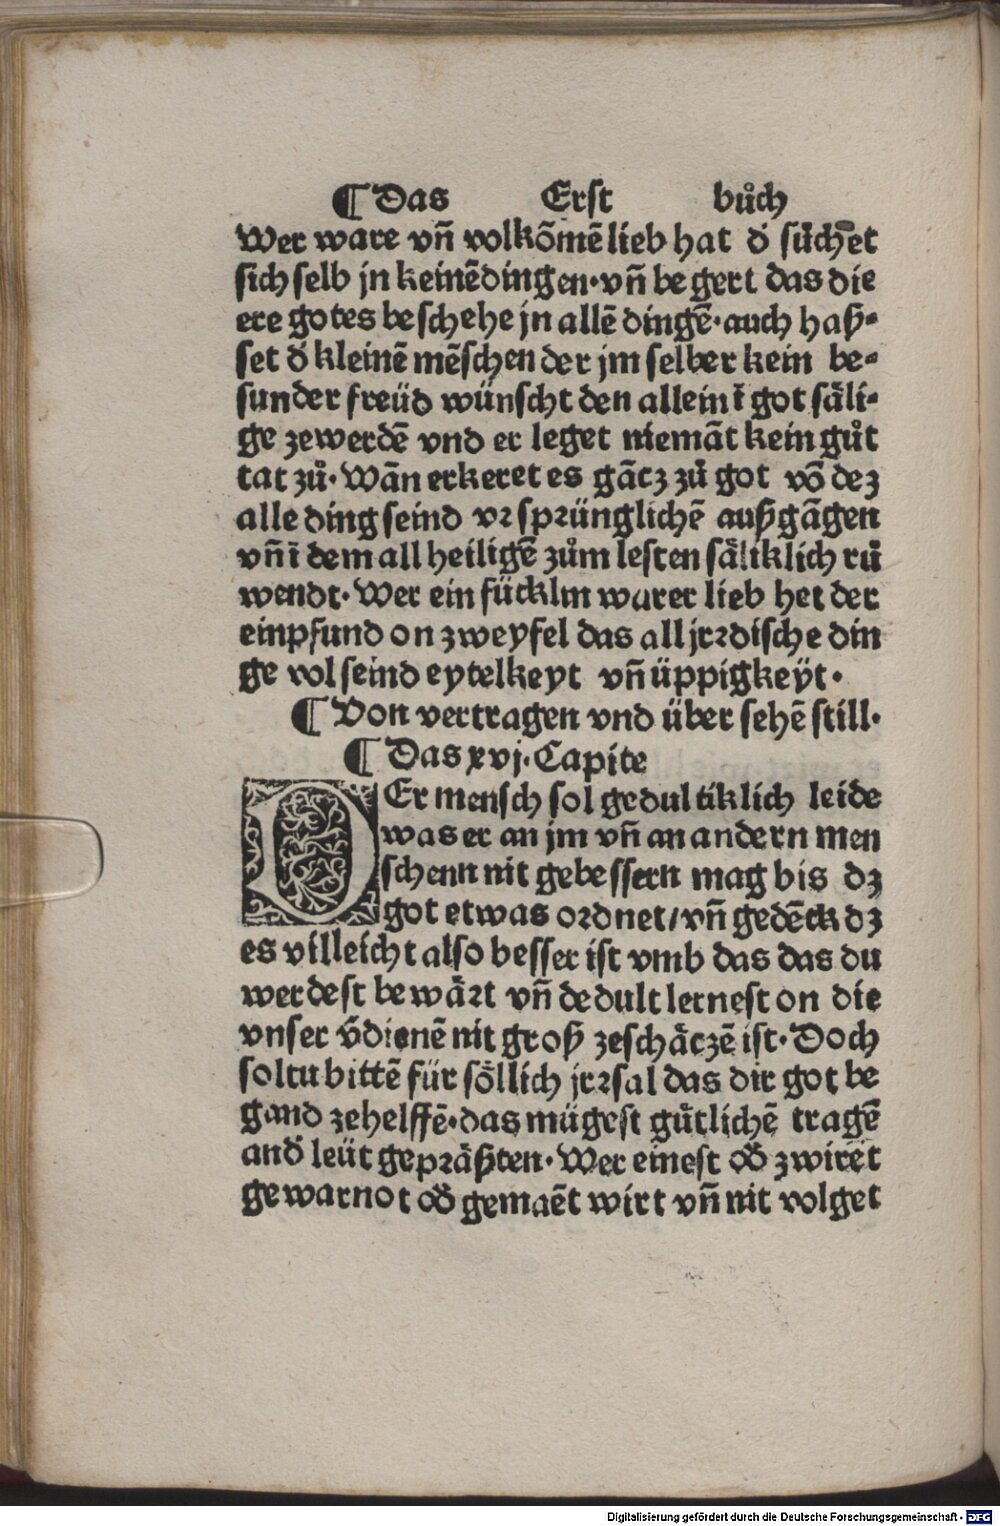 ¶ Das Erst bůch
Wer ware vñ volkõmẽ lieb hat d̕ sůchet
sich selb jn keinẽ dingen·vñ be gert das die
ere gotes be schehe jn allẽ dingẽ·auch haß⸗
set d̕ kleinẽ mẽschen der jm selber kein be⸗
sunder freüd wünscht den allein ĩ got säli⸗
ge zewerdẽ vnd er leget niemãt kein gůt
tat zů·Wãn er keret es gãtz zů got võ dez
alle ding seind vrsprünglichẽ außgãgen
vñ ĩ dem all heiligẽ zům lesten säliklich rů
wendt·Wer ein fücklin warer lieb het der
einpfund on zweyfel das all jrrdische din
ge vol seind eytelkeyt vñ üppigkeÿt·
¶ Von vertragen vnd über sehẽ still·
¶ Das xvj·Capite
DEr mensch sol gedultiklich leide
was er an jm vñ an andern men
schenn nit gebessern mag bis dz
got etwas ordnet/vñ gedẽck dz
es villeicht also besser ist vmb das das du
werdest bewärt vñ dedult lernest on die
vnser v̕dienẽ nit groß zeschätzẽ ist·Doch
soltu bittẽ für söllich jrrsal das dir got be
gand zehelffẽ·das mügest gůtlichẽ tragẽ
and̕ leüt gepräßten·Wer einest od̕ zwirẽt
gewarnot od̕ gemaẽt wirt vñ nit volget
Digitalisierung gefördert durch die Deutsche Forschungsgemeinschaft - DFG